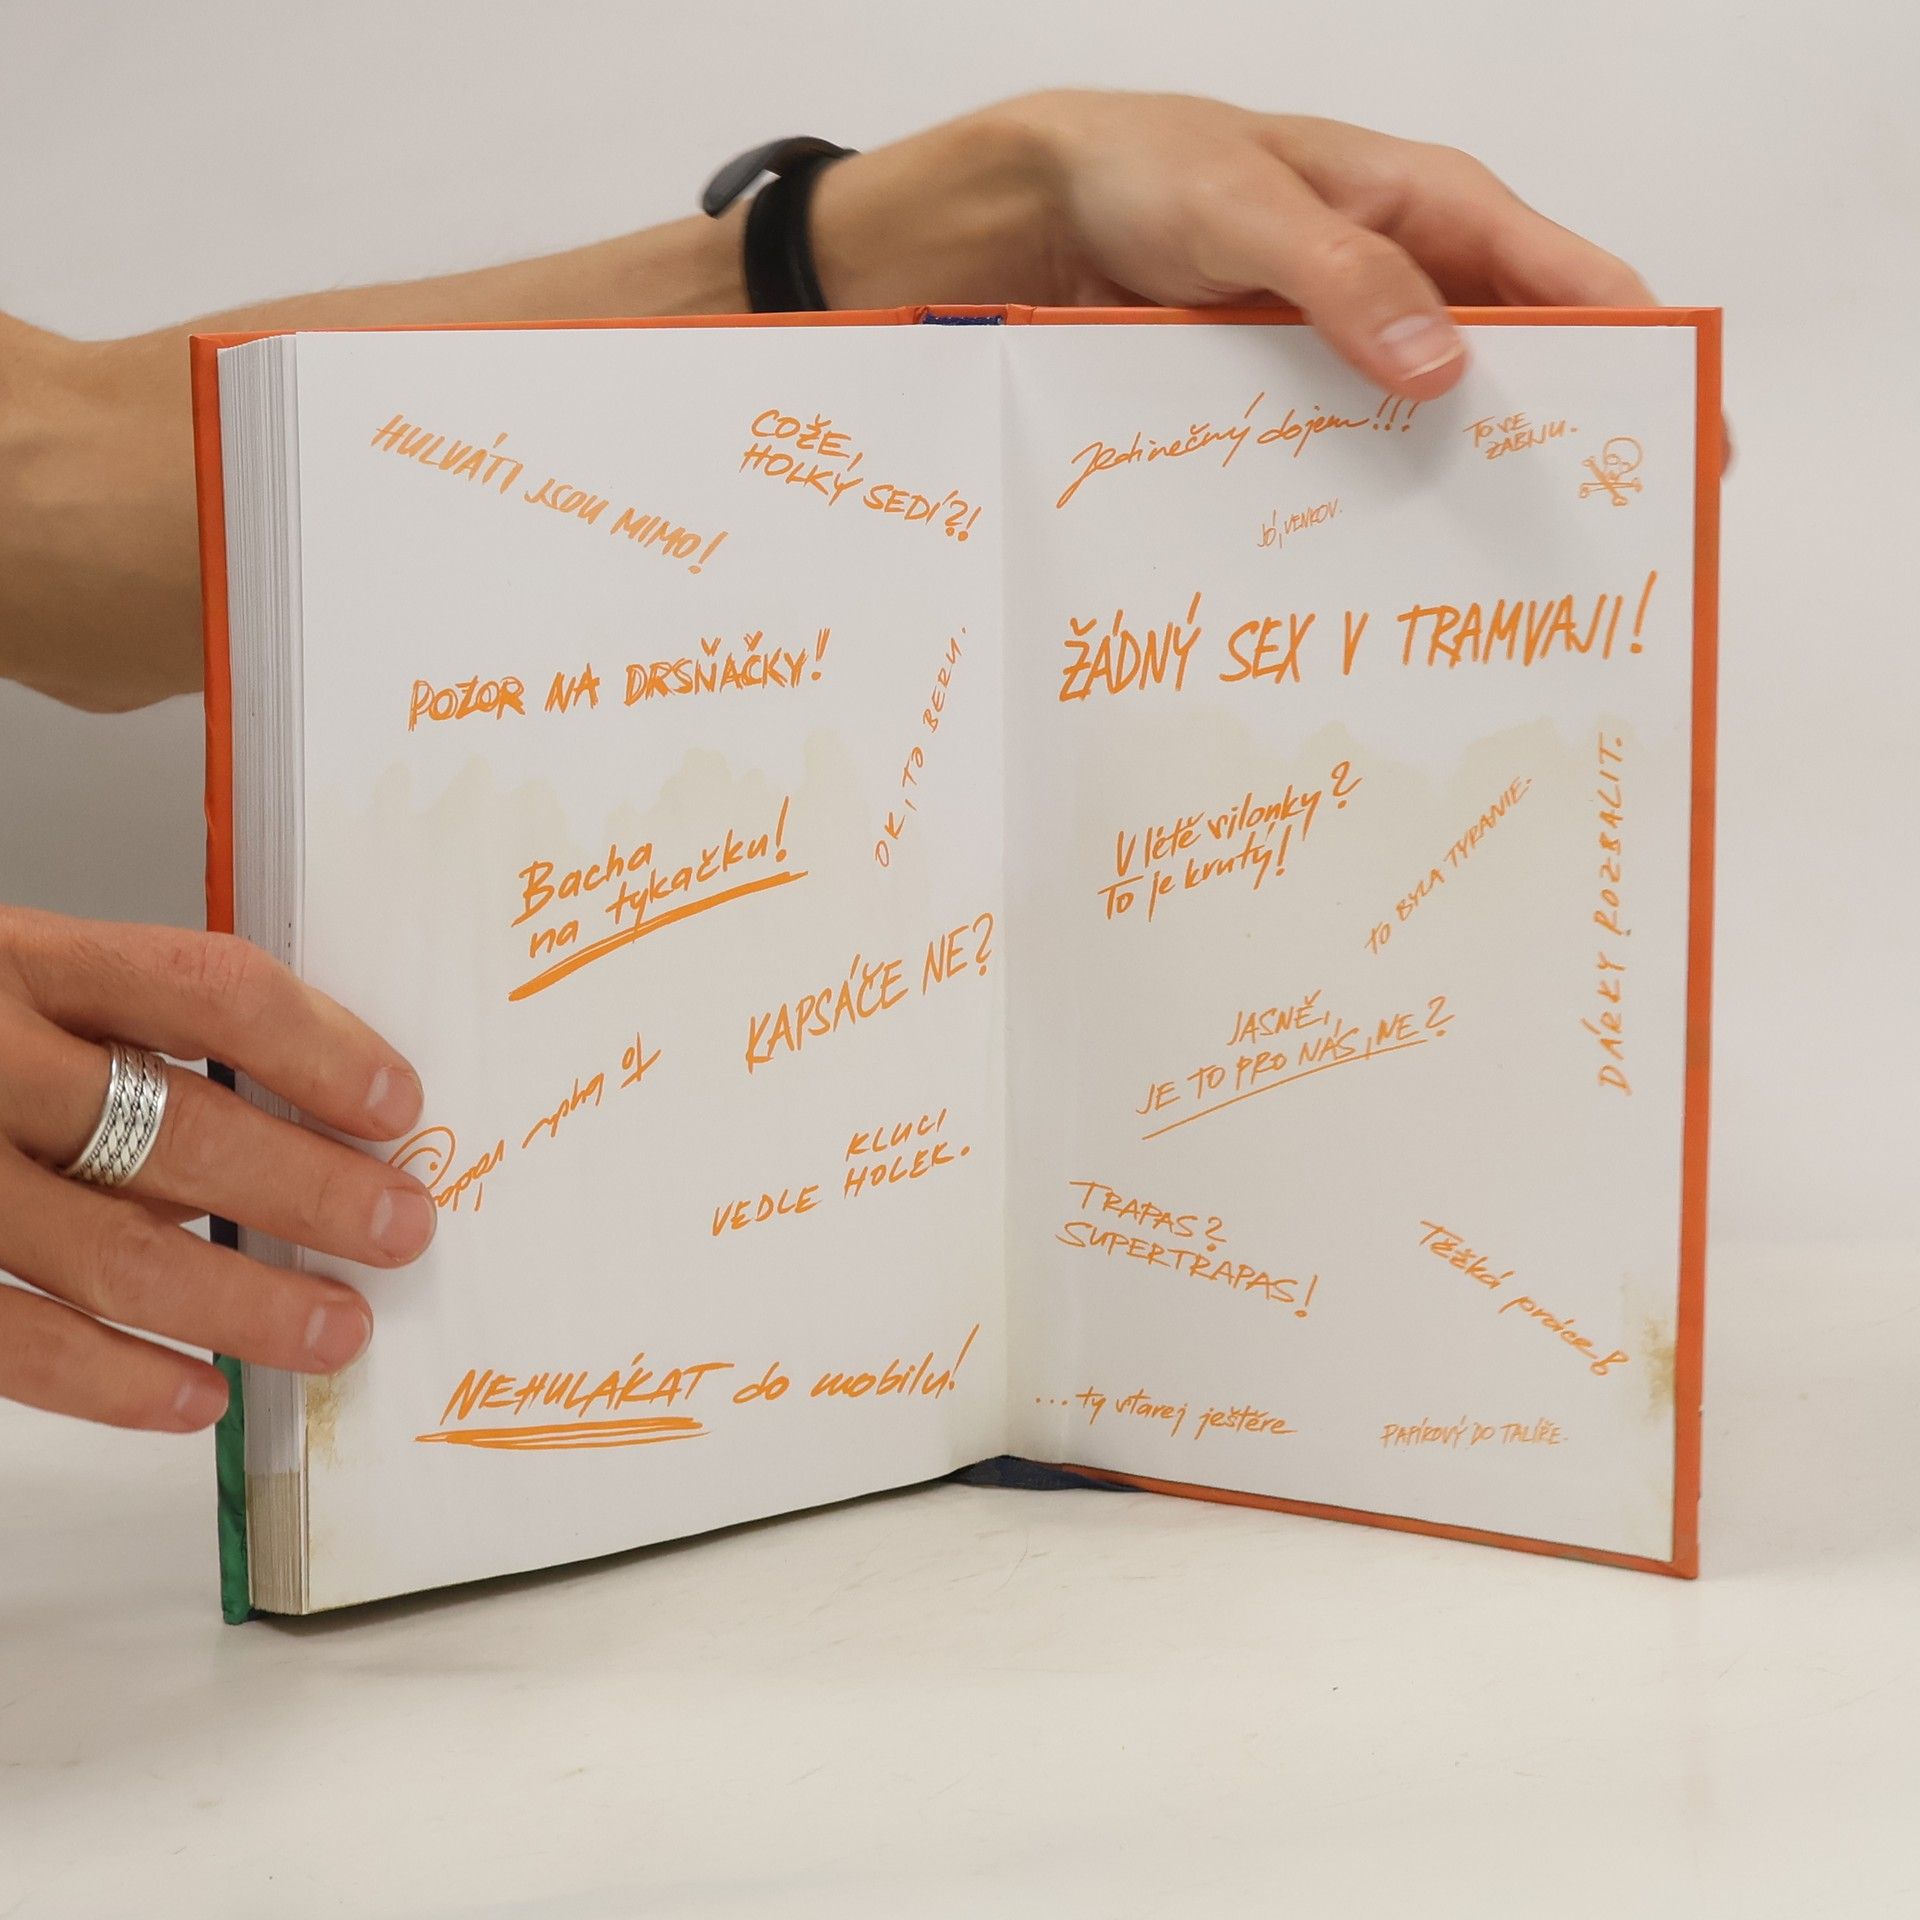 HULVÁTI JSOU MIMO!
COŽE,
HOLKY SEDÍ?!
POZOR NA DRSŇAČKY!!
OK, TO BERU.
Bacha
na tykačku!
KAPSÁČE NE?
KLUCI
VEDLE HOLEK.
NEHULÁKAT do mobilu!
Jedinečný dojem!!!
TO VE
ZABIJU.
JÓ, VENKOV.
ŽÁDNÝ SEX V TRAMVAJI!
V létě silonky?
To je krutý!
TO BYLA TYRANIE.
DÁRKY ROZBALIT.
JASNĚ,
JE TO PRO NÁS, NE?
TRAPAS?
SUPERTRAPAS!
Těžká práce
...ty starej ještěre
PAPÍROVÝ DO TALÍŘE.